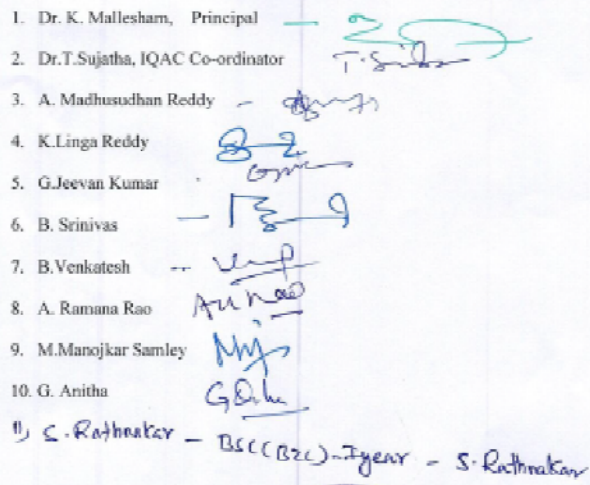 1. Dr. K. Mallesham, Principal —
2. Dr.T.Sujatha, IQAC Co-ordinator
3. A. Madhusudhan Reddy -
4. K.Linga Reddy
5. G.Jeevan Kumar
6. B. Srinivas —
7. B.Venkatesh --
8. A. Ramana Rao
9. M.Manojkar Samley
10. G. Anitha
11) S. Rathnakar - BSC(BZC)-I year - S. Rathnakar